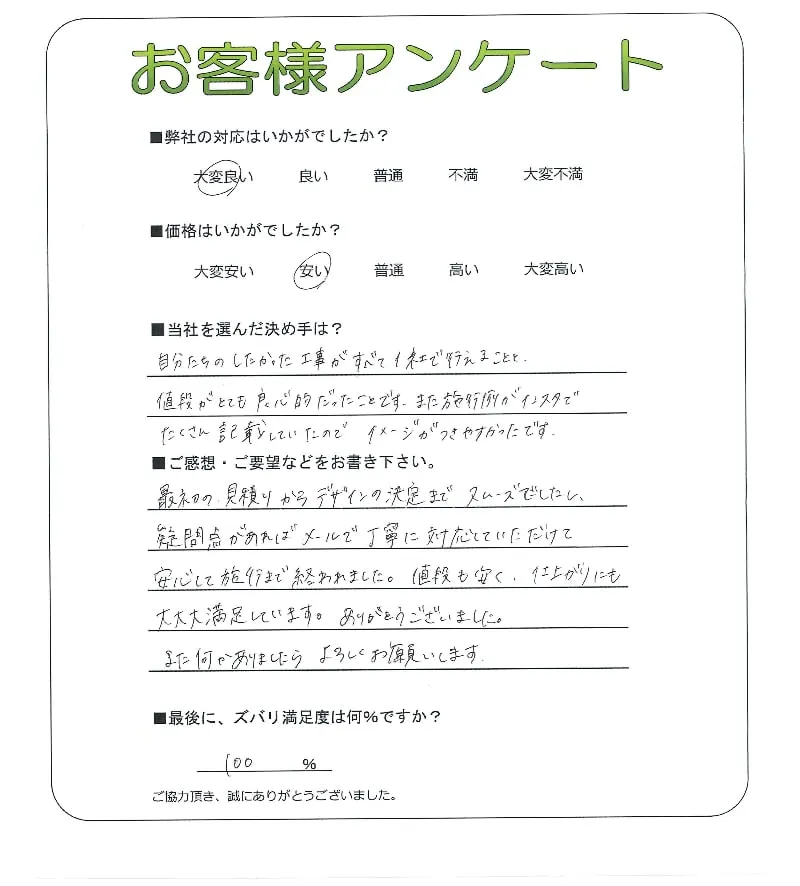 お客様アンケート
■弊社の対応はいかがでしたか？
大変良い 良い 普通 不満 大変不満
■価格はいかがでしたか？
大変安い 安い 普通 高い 大変高い
■当社を選んだ決め手は？
自分たちのしたかった工事がすべて1社で行えることと、
値段がとても良心的だったことです。また施行例がインスタで
たくさん記載していたので イメージがつきやすかったです。
■ご感想・ご要望などをお書き下さい。
最初の見積りからデザインの決定まで スムーズでしたし、
疑問点があればメールで丁寧に対応していただけて
安心して施行まで終われました。値段も安く、仕上がりにも
大大大満足しています。ありがとうございました。
また何かありましたら よろしくお願いします。
■最後に、ズバリ満足度は何%ですか？
100 %
ご協力頂き、誠にありがとうございました。